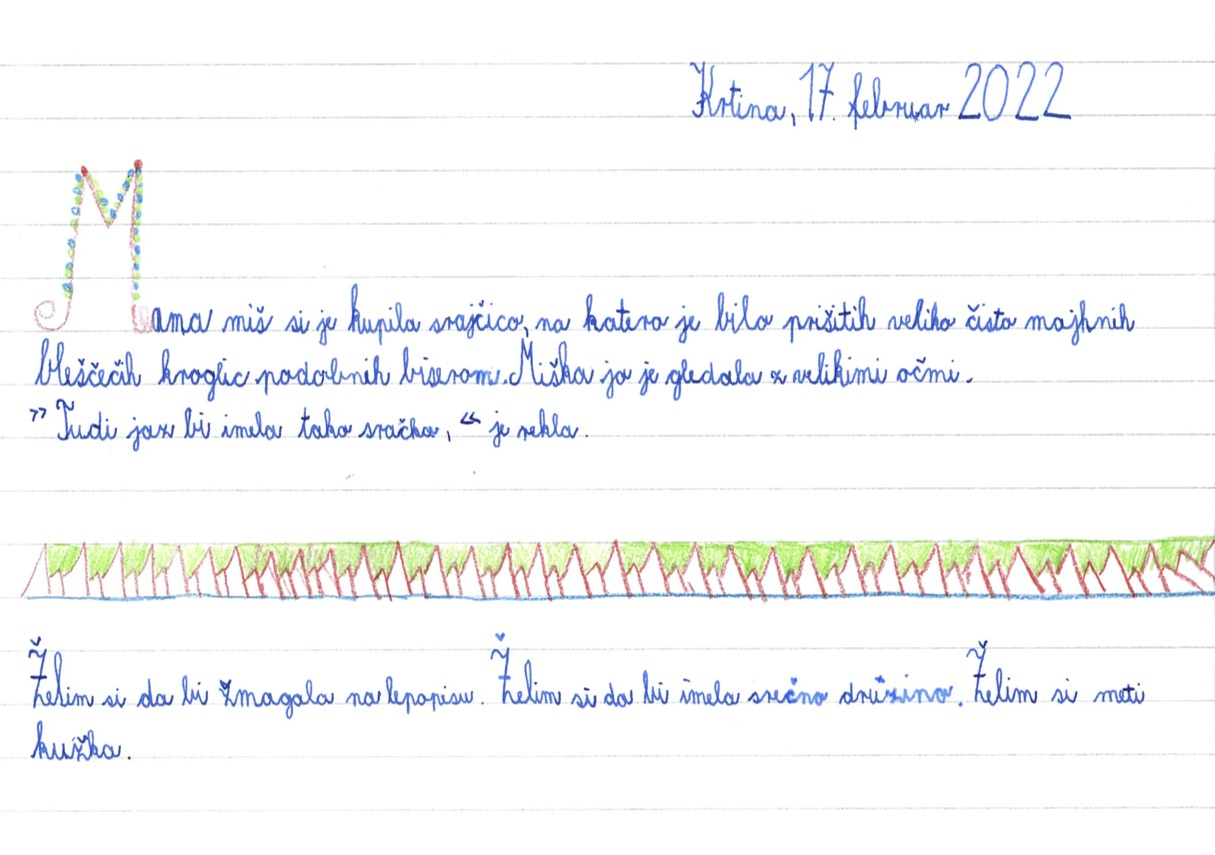 Krtina, 17. februar 2022
Mama miš si je kupila srajčico, na katero je bilo prišitih veliko čisto majhnih
bleščečih kroglic podobnih biserom. Miška jo je gledala z velikimi očmi.
"Tudi jaz bi imela tako sračko," je rekla.
Želim si da bi žmagala na lepopisu. Želim si da bi imela srečno družino. Želim si meti
kužka.